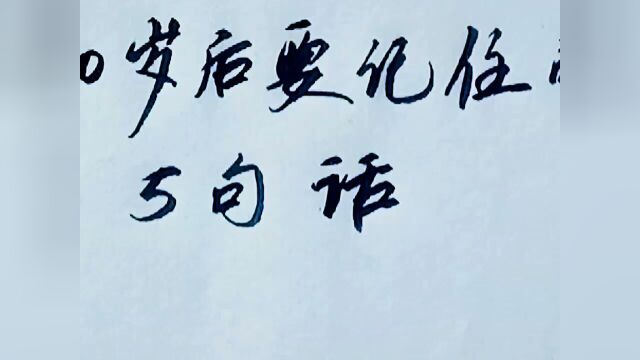 0岁后要记住
5句话